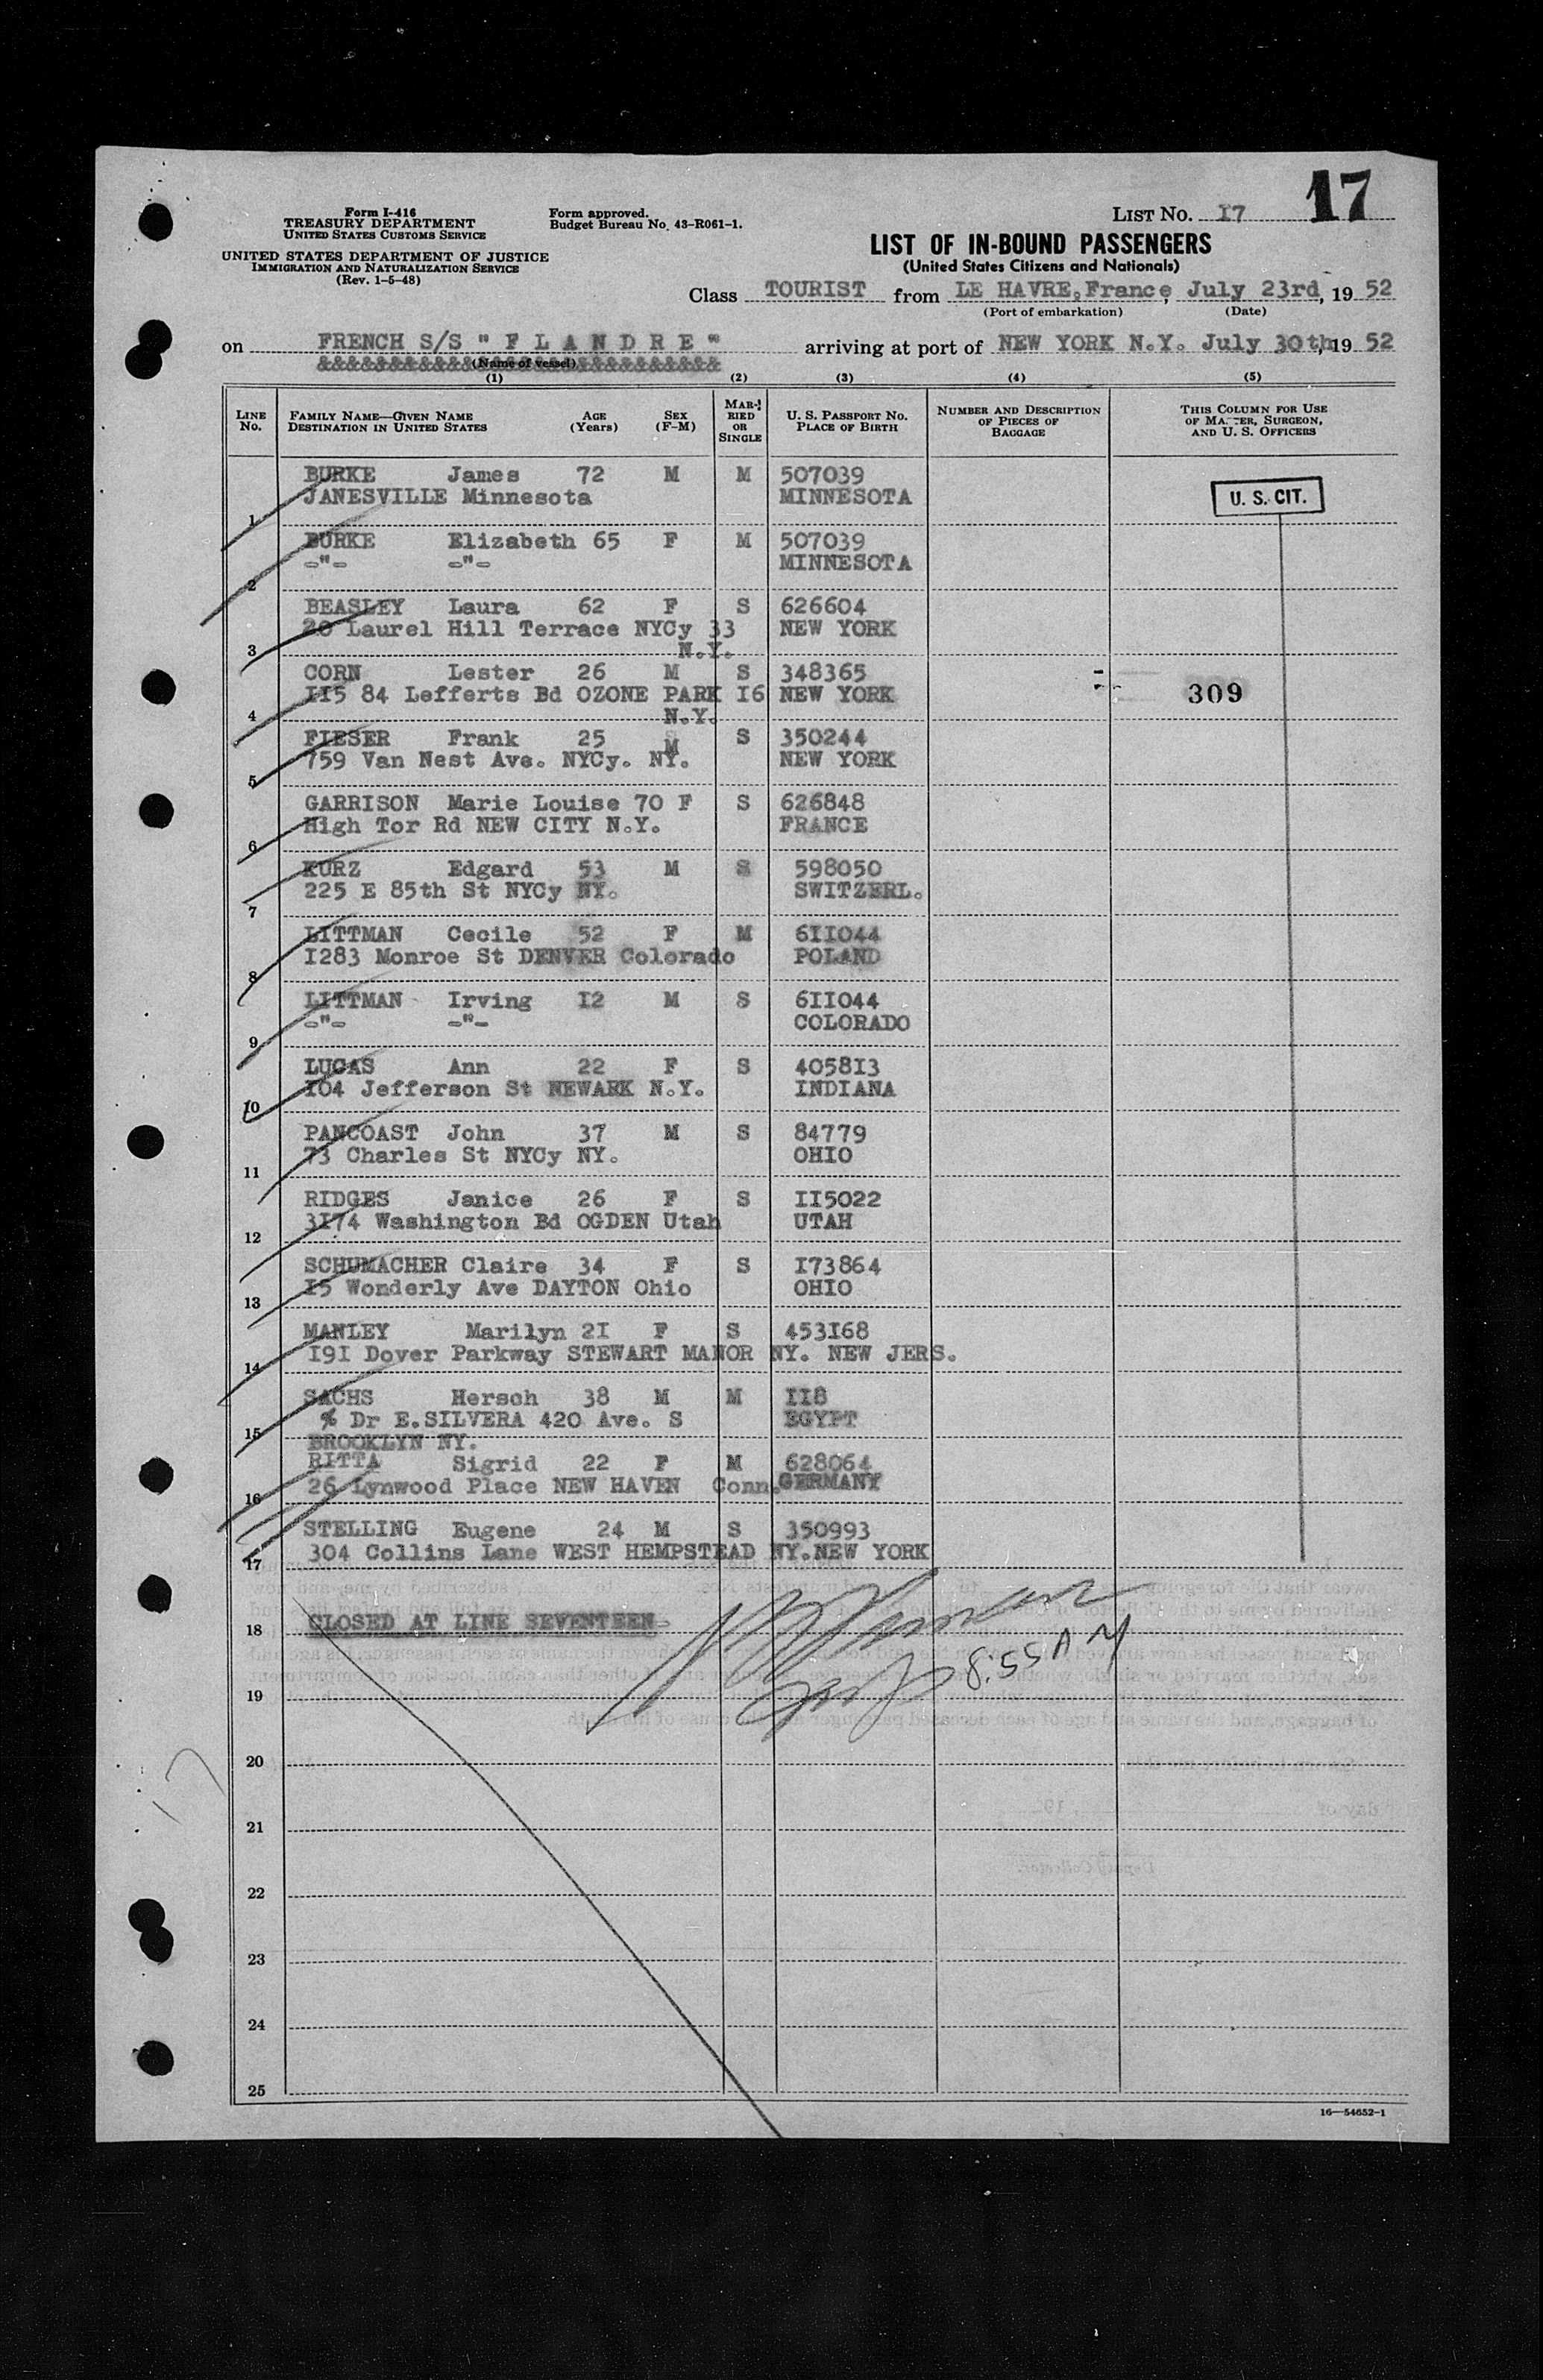 17
Form I-416
TREASURY DEPARTMENT
UNITED STATES CUSTOMS SERVICE
UNITED STATES DEPARTMENT OF JUSTICE
IMMIGRATION AND NATURALIZATION SERVICE
(Rev. 1-5-48)
Form approved.
Budget Bureau No. 43-R061-1.
LIST NO. I7
LIST OF IN-BOUND PASSENGERS
(United States Citizens and Nationals)
Class TOURIST from LE HAVRE,France, July 23rd, 19 52
(Port of embarkation) (Date)
on FRENCH S/S " F L A N D R E " arriving at port of NEW YORK N.Y. July 30th, 19 52
&&&&&&&&&&&&&&&&&&&&&&&&&&&&
(Name of vessel)
(1) (2) (3) (4) (5)
LINE No. FAMILY NAME—GIVEN NAME DESTINATION IN UNITED STATES AGE (Years) SEX (F-M) MARRIED OR SINGLE U. S. PASSPORT NO. PLACE OF BIRTH NUMBER AND DESCRIPTION OF PIECES OF BAGGAGE THIS COLUMN FOR USE OF MASTER, SURGEON, AND U. S. OFFICERS
BURKE James 72 M M 507039
1 JANESVILLE Minnesota MINNESOTA U. S. CIT.
BURKE Elizabeth 65 F M 507039
2 -"- -"- MINNESOTA
BEASLEY Laura 62 F S 626604
3 20 Laurel Hill Terrace NYCy 33 NEW YORK
N.Y.
CORN Lester 26 M S 348365
4 II5 84 Lefferts Bd OZONE PARK I6 NEW YORK 309
N.Y.
FIESER Frank 25 M S 350244
5 759 Van Nest Ave. NYCy. NY. NEW YORK
GARRISON Marie Louise 70 F S 626848
6 High Tor Rd NEW CITY N.Y. FRANCE
KURZ Edgard 53 M S 598050
7 225 E 85th St NYCy NY. SWITZERL.
LITTMAN Cecile 52 F M 6II044
8 I283 Monroe St DENVER Colorado POLAND
LITTMAN Irving I2 M S 6II044
9 -"- -"- COLORADO
LUCAS Ann 22 F S 4058I3
10 I04 Jefferson St NEWARK N.Y. INDIANA
PANCOAST John 37 M S 84779
11 73 Charles St NYCy NY. OHIO
RIDGES Janice 26 F S II5022
12 3I74 Washington Bd OGDEN Utah UTAH
SCHUMACHER Claire 34 F S I73864
13 I5 Wonderly Ave DAYTON Ohio OHIO
MANLEY Marilyn 2I F S 453I68
14 I9I Dover Parkway STEWART MANOR NY. NEW JERS.
SACHS Hersch 38 M M II8
15 % Dr E.SILVERA 420 Ave. S EGYPT
BROOKLYN NY.
RITTA Sigrid 22 F M 628064
16 26 Lynwood Place NEW HAVEN Conn. GERMANY
STELLING Eugene 24 M S 350993
17 304 Collins Lane WEST HEMPSTEAD NY. NEW YORK
18 CLOSED AT LINE SEVENTEEN-
8:55 AM
19
20
17
21
22
23
24
25
16—54652-1